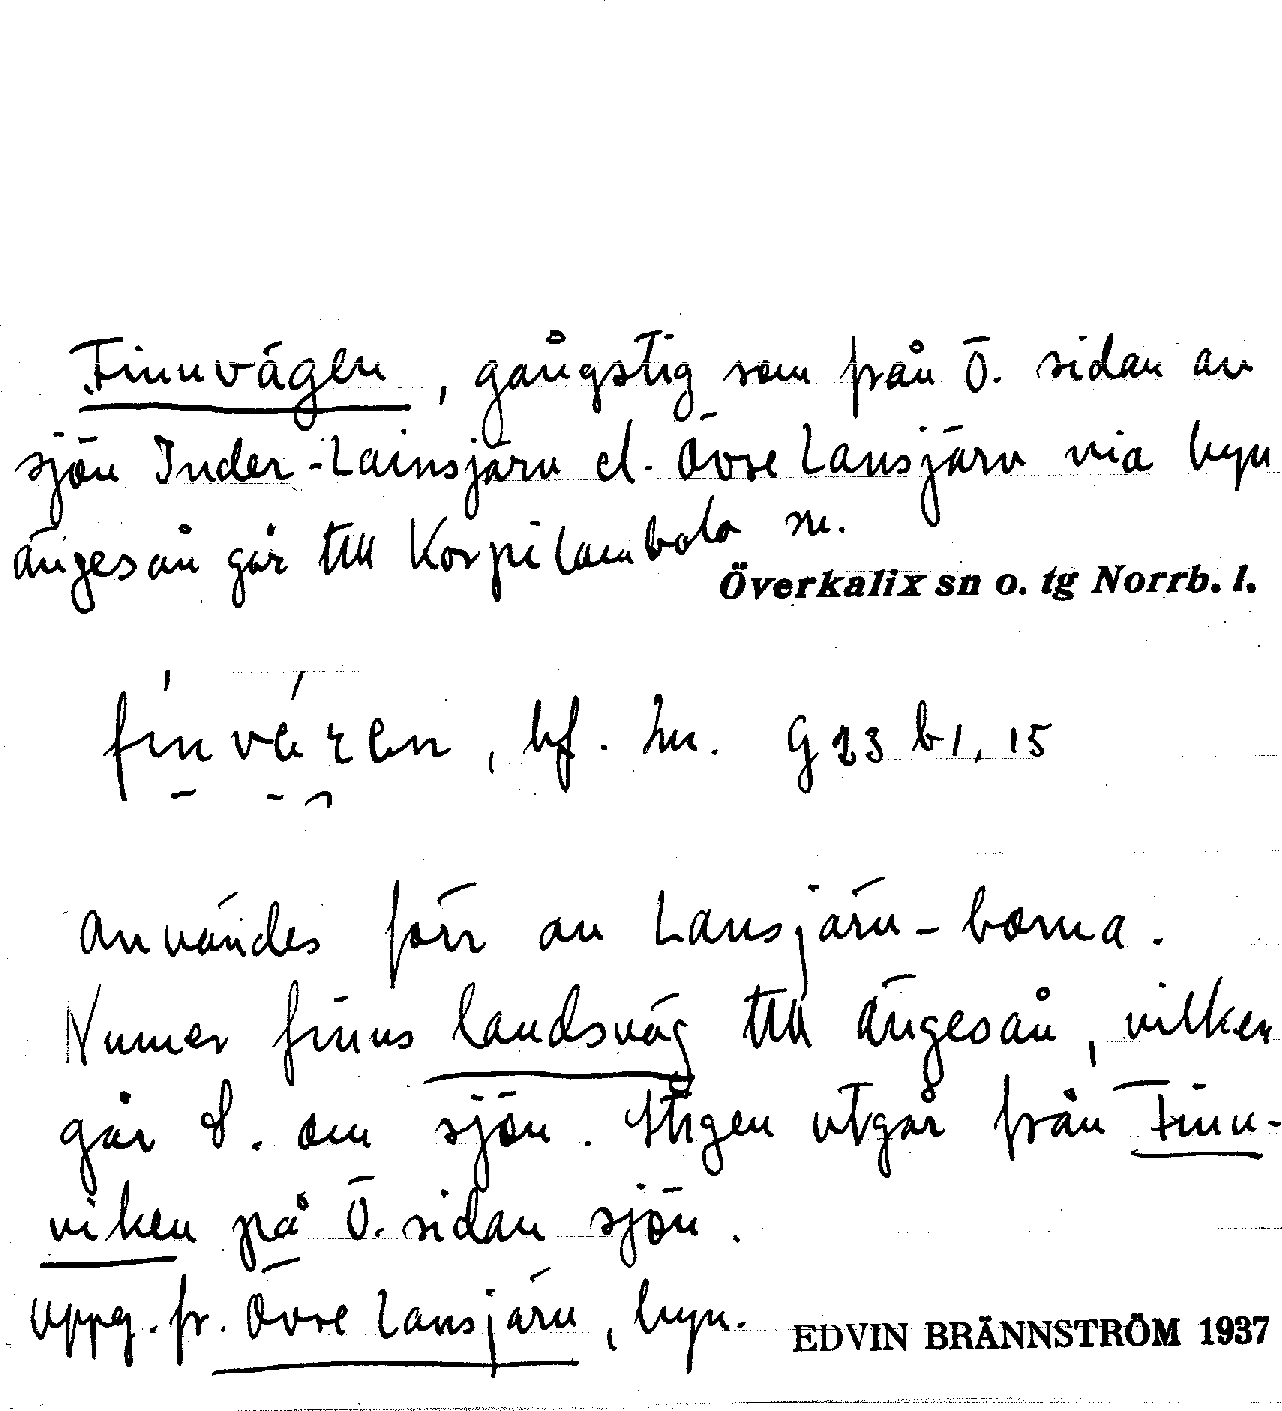 Finnvägen, gångstig som från Ö. sidan av
sjön Inder-Lainsjärv el. Övre Lansjärv via byn
Ängesån går till Korpilombolo sn.
Överkalix sn o. tg Norrb. l.
bf. hu. G 23 b1, 15
Användes förr av Lansjärv-borna.
Numer finns landsväg till Ängesån, vilken
går S. om sjön. Stigen utgår från Finn-
viken på Ö. sidan sjön.
Uppg. fr. Övre Lansjärv, byn.
EDVIN BRÄNNSTRÖM 1937